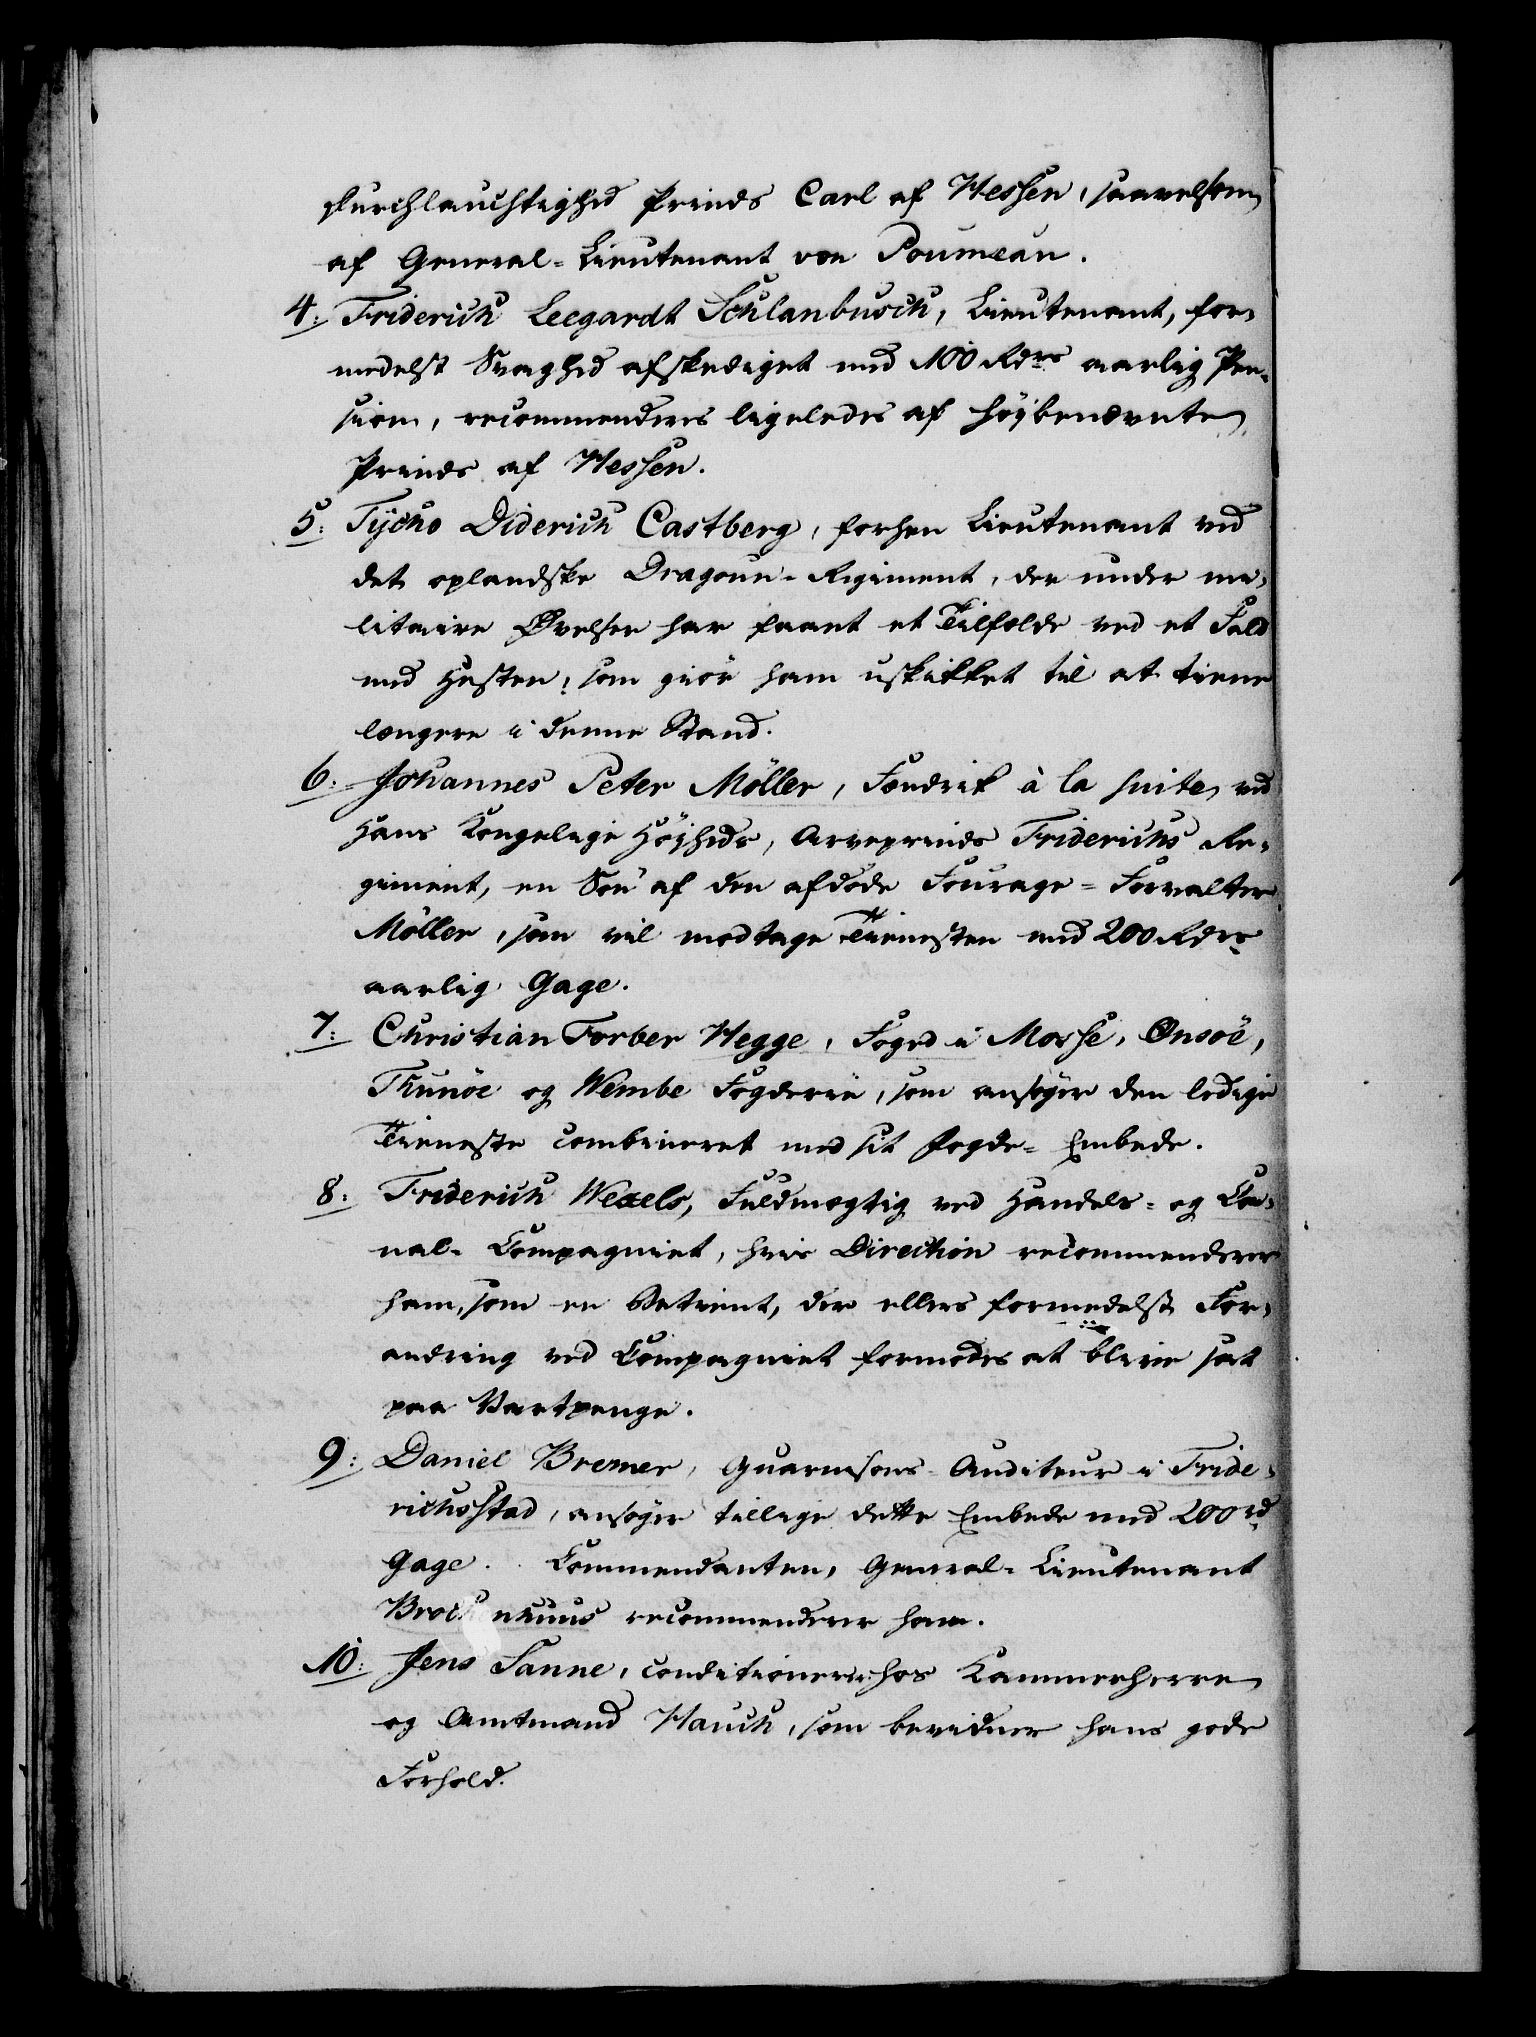 Durchlauchtighed Prinds Carl af Hessen, saavelsom
af General-Lieutenant von Poumeau.
4: Friderich Leegardt Schlanbusch, Lieutenant, for-
medelst Svaghed afskediget med 100 Rdrs aarlig Pen-
sion, recommenderes ligeledes af høybenævnte
Prinds af Hessen.
5: Tycho Diderich Castberg, forhen Lieutenant ved
det oplandske Dragoun-Regiment, der under mi-
litaire Øvelser har faaet et Tilfælde ved et Fald
med Hesten, som giør ham uskikket til at tiene
længere i denne Stand.
6: Johannes Peter Möller, Fændrik à la suite ved
Hans Kongelige Høyheds, Arveprinds Friderichs Re-
giment, en Søn af den afdøde Fourage-Forvalter
Möller, som vil modtage Tienesten med 200 Rdrs
aarlig Gage.
7: Christian Forber Hegge, Foged i Mosse, Onsöe,
Thunöe og Wembe Fogderie, som ansøger den ledige
Tieneste combineret med sit Fogde-Embede.
8: Friderich Wexels, Fuldmægtig ved Handels- og Ca-
nal-Compagniet, hvis Direction recommenderer
ham, som en Betient, der ellers formedelst For-
andring ved Compagniet formodes at blive sat
paa Vartpenge.
9: Daniel Bremer, Guarnisons-Auditeur i Fride-
richsstad, ansøger tillige dette Embede med 200 rd
Gage. Commendanten, General-Lieutenant
Brockenhuus recommenderer ham.
10: Jens Sanne, conditionerer hos Kammerherre
og Amtmand Hauch, som bevidner hans gode
Forhold.